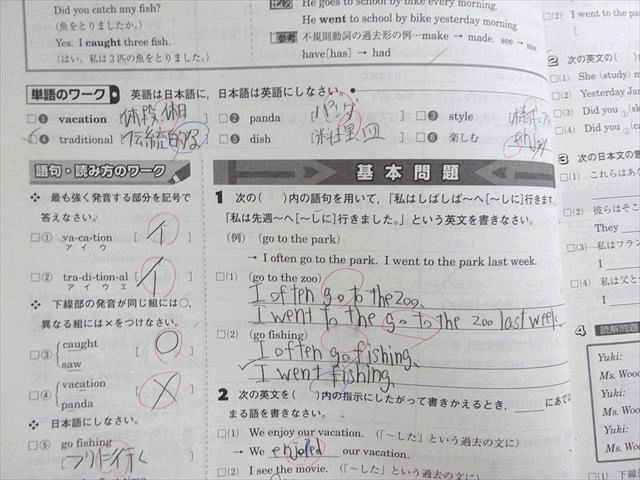 Did you catch any fish?
(魚をとりましたか。)
Yes. I caught three fish.
(はい。私は3匹の魚をとりました。)
比較 He goes to school by bike every morning.
He went to school by bike yesterday morning.
参考 不規則動詞の過去形の例…make → made, see → saw,
have[has] → had
単語のワーク 英語は日本語に,日本語は英語にしなさい。
□❶ vacation
□❷ panda パンダ
□❸ style
□❹ traditional 伝統的な
□❺ dish 料理 皿
□❻ 楽しむ enjoy
語句・読み方のワーク
❖ 最も強く発音する部分を記号で
答えなさい。
□① va-ca-tion [イ]
ア イ ウ
□② tra-di-tion-al [イ]
ア イ ウ エ
❖ 下線部の発音が同じ組には○,
異なる組には×をつけなさい。
□③ caught [○]
saw
□④ vacation [×]
panda
❖ 日本語にしなさい。
□⑤ go fishing
[つりに行く
基本問題
1 次の( )内の語句を用いて,「私はしばしば〜へ[〜しに]行きます。
「私は先週〜へ[〜しに]行きました。」という英文を書きなさい。
(例) (go to the park)
→ I often go to the park. I went to the park last week.
□(1) (go to the zoo)
I often go to the zoo.
I went to the go to the zoo last week.
□(2) (go fishing)
I often go fishing.
I went fishing.
2 次の英文を( )内の指示にしたがって書きかえるとき,
まる語を書きなさい。
□(1) We enjoy our vacation. (「〜した」という過去の文に)
→ We enjoied our vacation.
□(2) I see the movie. (「〜した」という過去の文に)
(2) I went to the pa
2 次の英文の(
□(1) She (study) m
□(2) Yesterday Jan
□(3) Did you
□(4) Did you
3 次の日本文の意
□(1) これらはあな
□(2) 彼らはそこ
They
□(3) 私はフラン
I
□(4) 私は父と
I
4 読解問題
Yuki:
Ms. Wood
Yuki:
Ms. Wood
Yuki:
Yuki:
Ms. Woo
□(1) 下線部